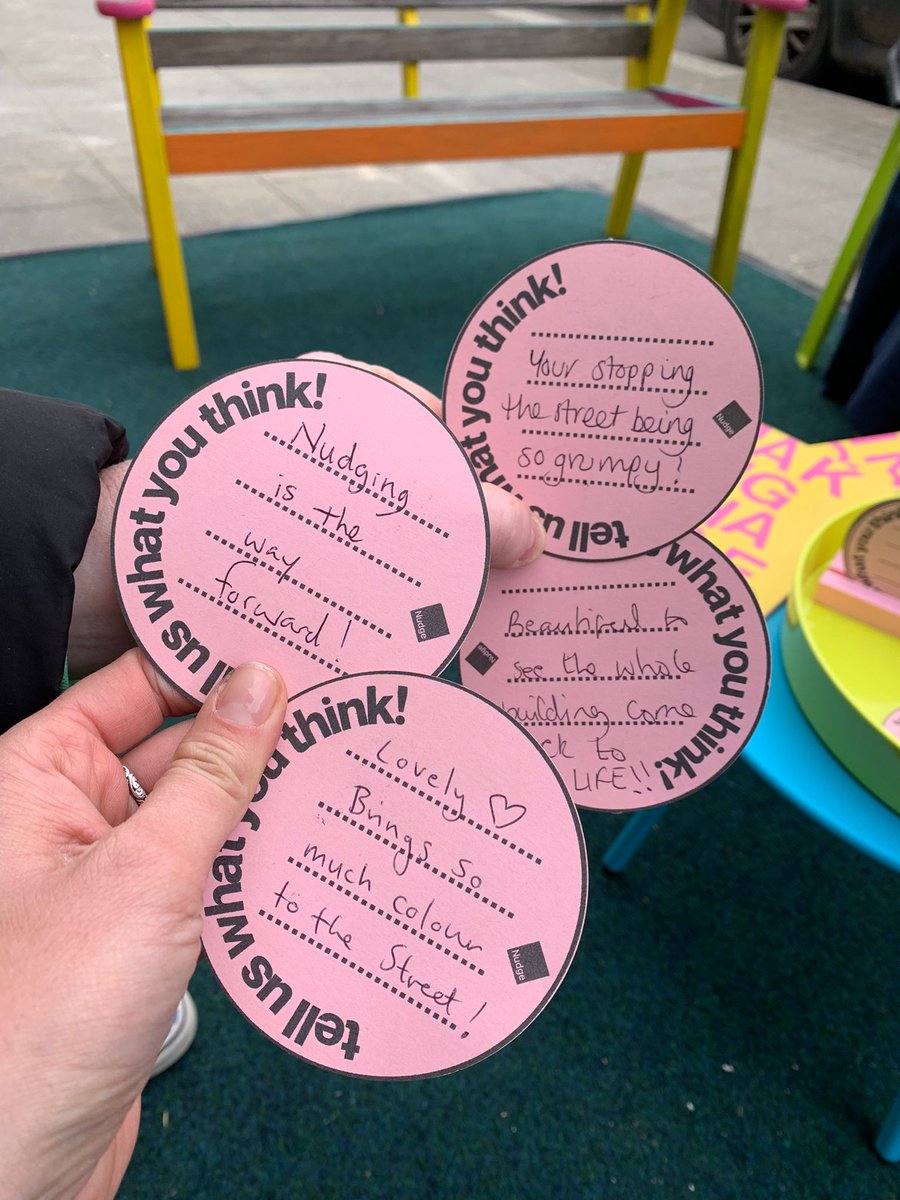 tell us what you think!
Nudging
is the
way
forward!
Nudge
tell us what you think!
Your stopping
the street being
so grumpy!
Nudge
what you think!
Beautiful to
see the whole
building come
to
LIFE!!
Nudge
tell us what you think!
Lovely ♡
Brings so
much colour
to the Street!
Nudge